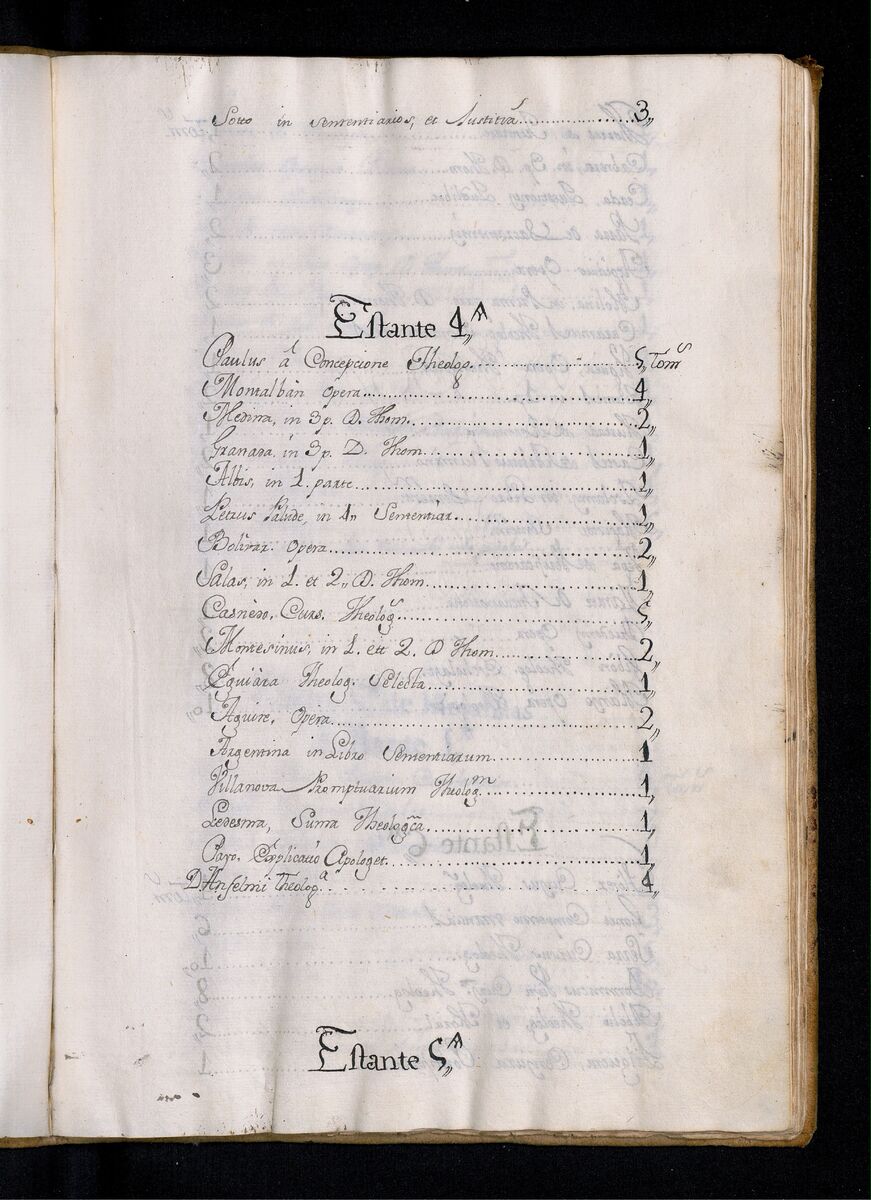 Soto in sententiarios, et Iustitiâ. 3,,
Estante 4,,ª
Paulus â Concepcione Theolog. 5,, Tomˢ
Montalbàn opera 4,,
Medina, in 3 p. D. Thom. 2,,
Granada, in 3 p. D. Thom. 1,,
Albis, in 1. parte 1,,
Petrus Palude, in 4,, Sententiar. 1,,
Bolivar. Opera 2,,
Salas, in 1. et 2,, D. Thom. 1,,
Casnèdo, Curs. Theologˢ 5,,
Montesinus, in 1. ett 2. D Thom. 2,,
Eguiàra Theolog. Selecta 1,,
Aguire, Opera 2,,
Argentina in Libro Sententiarum 1
Villanova Promptuarium Theologᵐ 1,
Ledesma, Suma Theologᶜᵃ 1,
Explicatiò Apologet. 1,
D Anselmi Theologᵃ 4,,
Estante 5,,ª